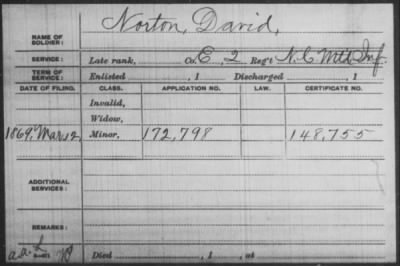 NAME OF SOLDIER: Norton, David,
SERVICE: Late rank, Co. E, 2 Reg't N.C. Mtd. Inf.
TERM OF SERVICE: Enlisted , 1 Discharged , 1
DATE OF FILING. CLASS. APPLICATION NO. LAW. CERTIFICATE NO.
Invalid,
Widow,
1869, Mar 12 Minor, 172,798 148,755
ADDITIONAL SERVICES:
REMARKS:
Died , 1 , at